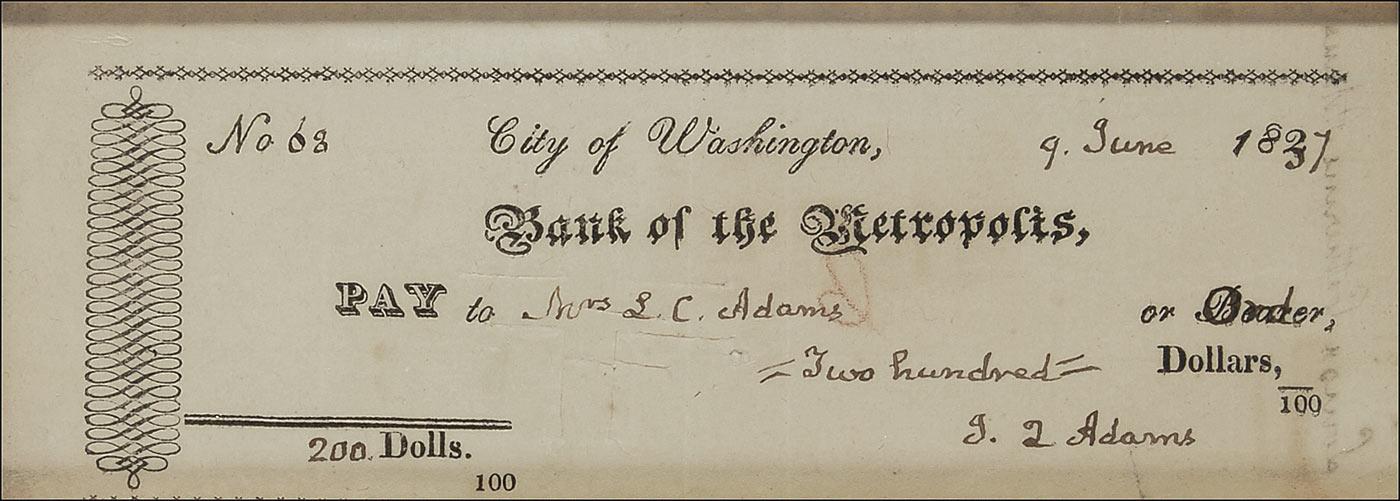 No 68 City of Washington, 9. June 1837
Bank of the Metropolis,
PAY to Mrs L. C. Adams or Order,
=Two hundred= Dollars,
100
J. Q Adams
200 Dolls.
100